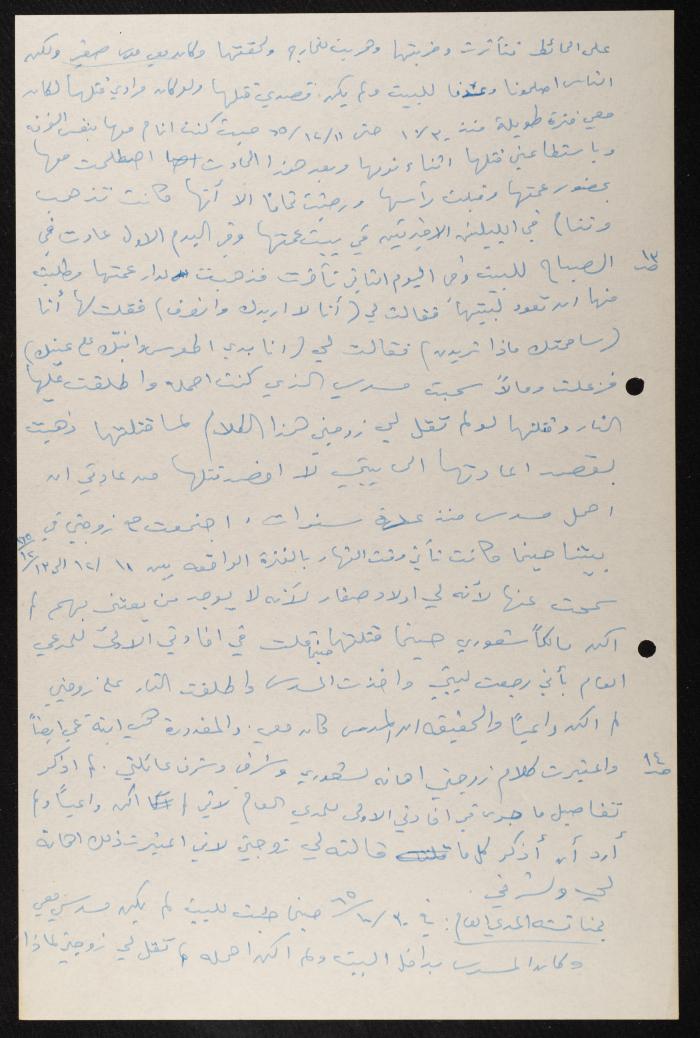 على الحائط فتأثرت وضربتها وهربت للخارج ولحقتها وكان معي موس صغير ولكن
الناس اصلحونا وعدنا للبيت ولم يكن قصدي قتلها ولو كان مرادي قتلها لكان
معي فترة طويلة منذ ١٠/٣٠ حتى ٦٥/١٢/١١ حيث كنت انام معها بنفس الغرفة
وباستطاعتي قتلها اثناء نومها وبعد هذا الحادث اصطلحت معها
بحضور عمتها وقبلت رأسها ورضيت تماماً الا أنها كانت تذهب
وتنام في الليلتين الاخيرتين في بيت عمتها وفي اليوم الاول عادت في
ص١٣
الصباح للبيت وفي اليوم الثاني تأخرت فذهبت لدار عمتها وطلبت
منها ان تعود لبيتها فقالت لي (أنا لا اريدك وانصرف) فقلت لها أنا
(سامحتك ماذا تريدين) فقالت لي (انا بدي اطلع من عينك)
فزعلت وحالاً سحبت مسدسي الذي كنت احمله واطلقت عليها
النار وقتلتها لو لم تقل لي زوجتي هذا الكلام لما قتلتها ذهبت
بقصد اعادتها الى بيتي لا بقصد قتلها من عادتي ان
احمل مسدس منذ عدة سنوات ، اجتمعت مع زوجتي في
بيتنا حينما كانت تأتي وقت النهار بالفترة الواقعة بين ١١ /١٢ الى ١٣/١٢/٦٥
سمحت عنها لأنه لي اولاد صغار لأنه لا يوجد من يعتني بهم لم
اكن مالكاً شعوري حينما قتلتها حينما قلت في افادتي الاولى للمدعي
العام بأني رجعت لبيتي واخذت المسدس واطلقت النار على زوجتي
لم اكن واعياً والحقيقة ان المسدس كان معي . والمغدورة هي ابنة عمي ايضاً
ص١٤
واعتبرت كلام زوجتي اهانه لشعوري وشرفي وشرف عائلتي . لم اذكر
تفاصيل ما جرى في افادتي الاولى للمدعي العام لأني لم اكن واعياً ولم
أرد أن أذكر كل ما قالته لي زوجتي لاني اعتبرت ذلك اهانة
لي ولشرفي .
بمناقشة المدعي العام : في ٦٥/١٠/٣٠ حينما جئت للبيت لم يكن مسدسي معي
وكان المسدس بداخل البيت ولم اكن احمله لم تقل لي زوجتي لماذا